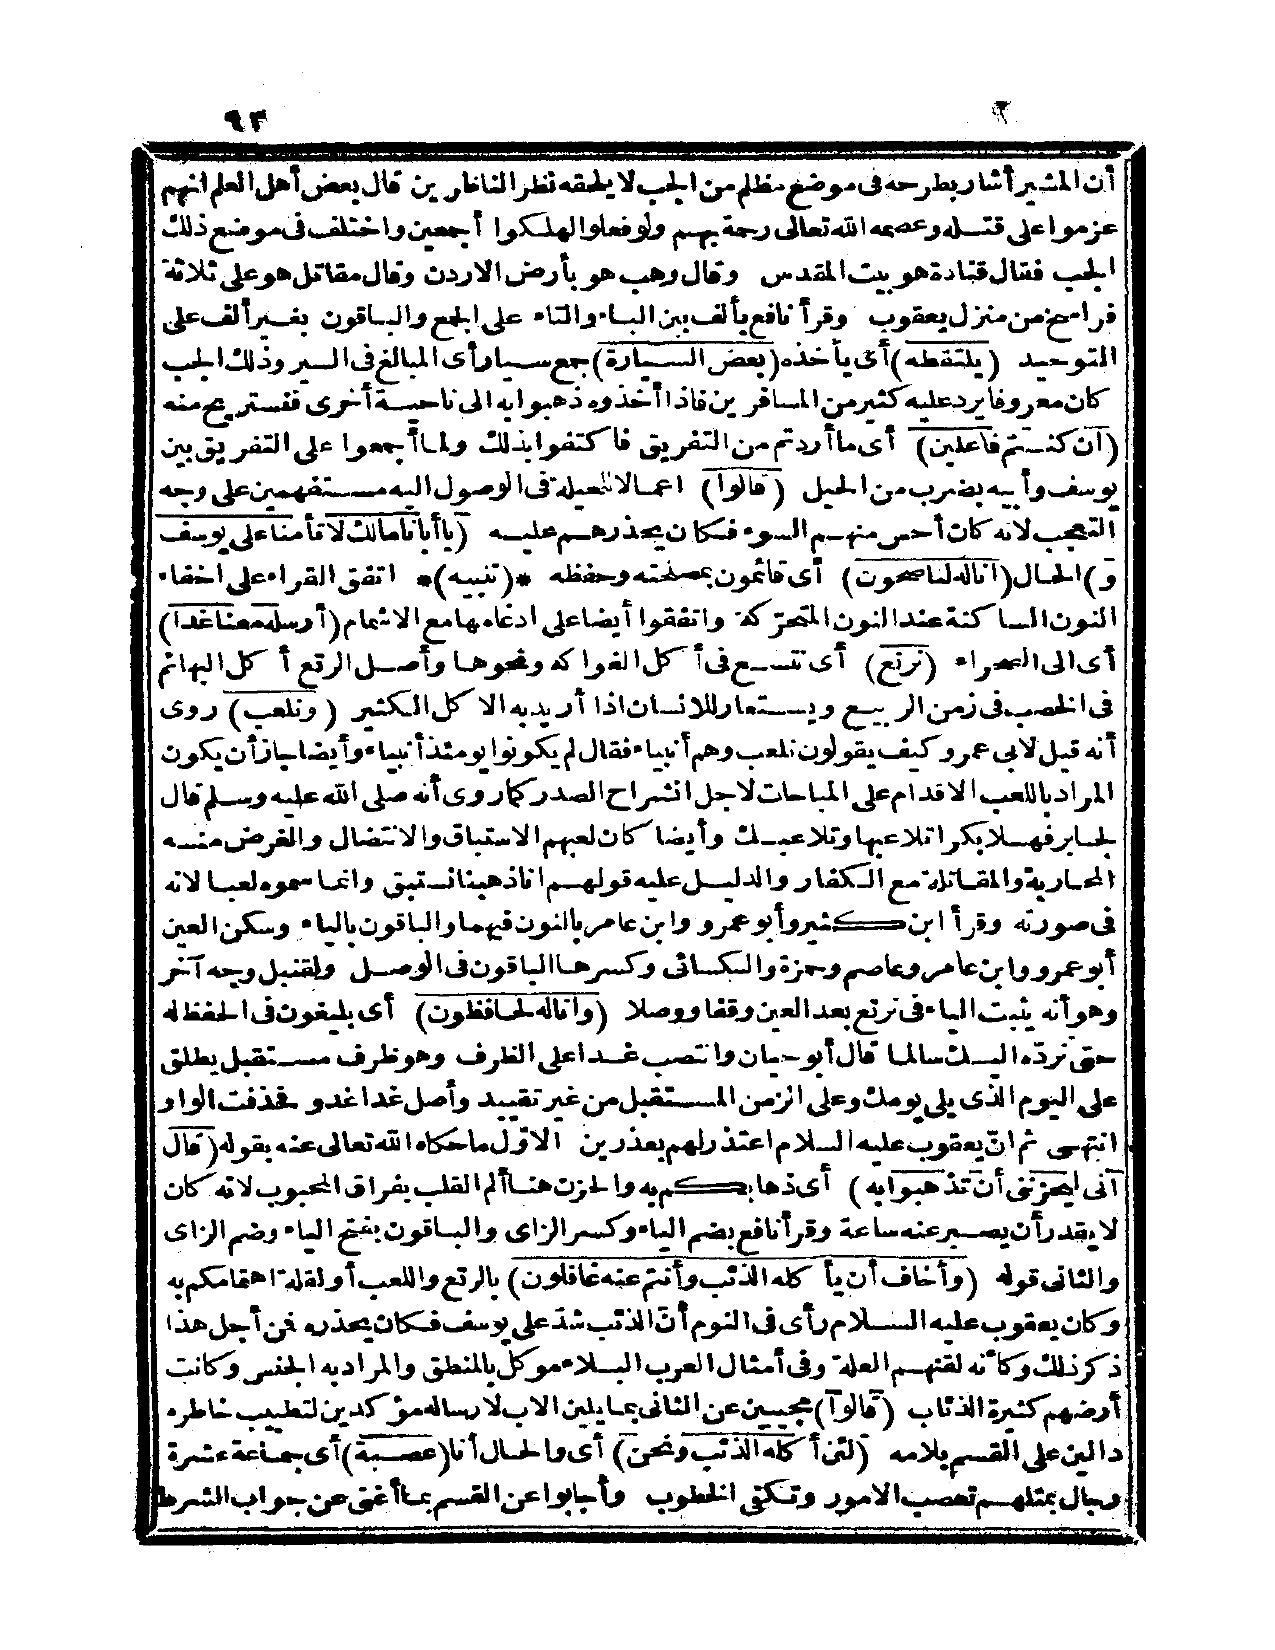 ٩٣
أن المشير أشار بطرحه فى موضع مظلم من الجب لا يلحقه نظر الناظرين قال بعض أهل العلم انهم
عزموا على قتله وعصمه الله تعالى رحمة بهم ولو فعلوا لهلكوا أجمعين واختلف فى موضع ذلك
الجب فقال قتادة هو بيت المقدس وقال وهب هو بأرض الاردن وقال مقاتل هو على ثلاثة
فراسخ من منزل يعقوب وقرأ نافع بألف بين الباء والتاء على الجمع والباقون بغير ألف على
التوحيد (يلتقطه) أى يأخذه (بعض السيارة) جمع سيار أى المبالغ فى السير وذلك الجب
كان معروفا يرد عليه كثير من المسافرين فاذا أخذوه ذهبوا به الى ناحية أخرى فنستريح منه
(ان كنتم فاعلين) أى ما أردتم من التفريق فاكتفوا بذلك ولما أجمعوا على التفريق بين
يوسف وأبيه بضرب من الحيل (قالوا) اعمالا للحيلة فى الوصول اليه مستفهمين على وجه
التعجب لانه كان أحس منهم السوء فكان يحذرهم عليه (يا أبانا مالك لا تأمنا على يوسف
و) الحال (اناله لناصحون) أى قائمون بمصلحته وحفظه *(تنبيه)* اتفق القراء على اخفاء
النون الساكنة عند النون المتحركة واتفقوا أيضا على ادغامها مع الاشمام (أرسله معنا غدا)
أى الى الصحراء (نرتع) أى نتسع فى أكل الفواكه ونحوها وأصل الرتع أكل البهائم
فى الخصب فى زمن الربيع ويستعار للانسان اذا أريد به الاكل الكثير (ونلعب) روى
أنه قيل لابى عمرو كيف يقولون نلعب وهم أنبياء فقال لم يكونوا يومئذ أنبياء وأيضا جاز أن يكون
المراد باللعب الاقدام على المباحات لاجل انشراح الصدر كما روى أنه صلى الله عليه وسلم قال
لجابر فهلا بكرا تلاعبها وتلاعبك وأيضا كان لعبهم الاستباق والانتضال والغرض منه
المحاربة والمقاتلة مع الكفار والدليل عليه قولهم انا ذهبنا نستبق وانما سموه لعبا لانه
فى صورته وقرأ ابن كثير وأبو عمرو وابن عامر بالنون فيهما والباقون بالياء وسكن العين
أبو عمرو وابن عامر وعاصم وحمزة والكسائى وكسرها الباقون فى الوصل ولقنبل وجه آخر
وهو أنه يثبت الياء فى نرتع بعد العين وقفا ووصلا (واناله لحافظون) أى بليغون فى الحفظ له
حتى نرده اليك سالما قال أبو حيان وانتصب غدا على الظرف وهو ظرف مستقبل يطلق
على اليوم الذى يلى يومك وعلى الزمن المستقبل من غير تقييد وأصل غدا غدو فحذفت الواو
انتهى ثم انّ يعقوب عليه السلام اعتذر لهم بعذرين الاوّل ما حكاه الله تعالى عنه بقوله (قال
انى ليحزننى أن تذهبوا به) أى ذهابكم به والحزن هنا ألم القلب بفراق المحبوب لانه كان
لا يقدر أن يصبر عنه ساعة وقرأ نافع بضم الياء وكسر الزاى والباقون بفتح الياء وضم الزاى
والثانى قوله (وأخاف أن يأكله الذئب وأنتم عنه غافلون) بالرتع واللعب أو لقلة اهتمامكم به
وكان يعقوب عليه السلام رأى فى النوم أنّ الذئب شدّ على يوسف فكان يحذره فمن أجل هذا
ذكر ذلك وكأنه لقنهم العلة وفى أمثال العرب البلاء موكل بالمنطق والمراد به الجنس وكانت
أرضهم كثيرة الذئاب (قالوا) مجيبين عن الثانى بما يلين الاب لارساله مؤكدين لتطييب خاطره
دالين على القسم بلامه (لئن أكله الذئب ونحن) أى والحال أنا (عصبة) أى جماعة عشرة
رجال بمثلهم تعصب الامور وتكفى الخطوب وأجابوا عن القسم بما أغنى عن جواب الشرط